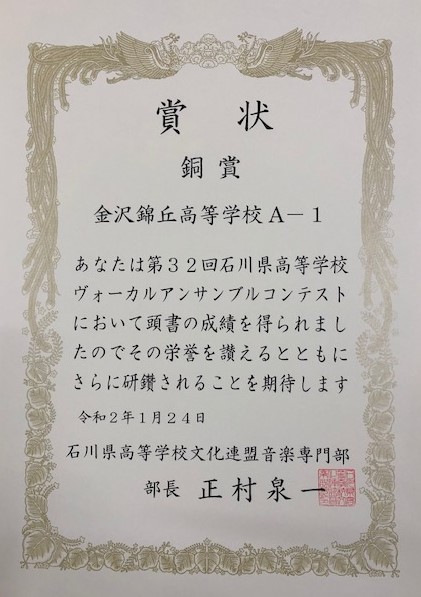 賞状
銅賞
金沢錦丘高等学校A－1
あなたは第３２回石川県高等学校
ヴォーカルアンサンブルコンテスト
において頭書の成績を得られまし
たのでその栄誉を讃えるとともに
さらに研鑽されることを期待します
令和２年１月２４日
石川県高等学校文化連盟音楽専門部
部長 正村泉一